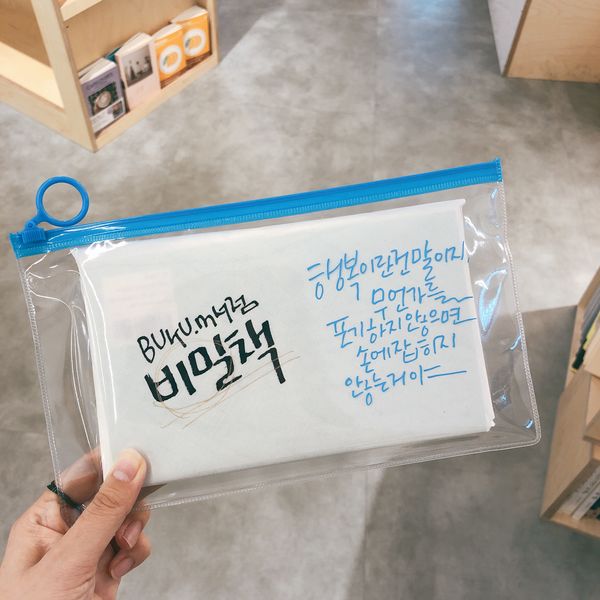 BUKU.m서점
비밀책
행복이란건 말이지
무언가를
포기하지않으면
손에잡히지
않는거야